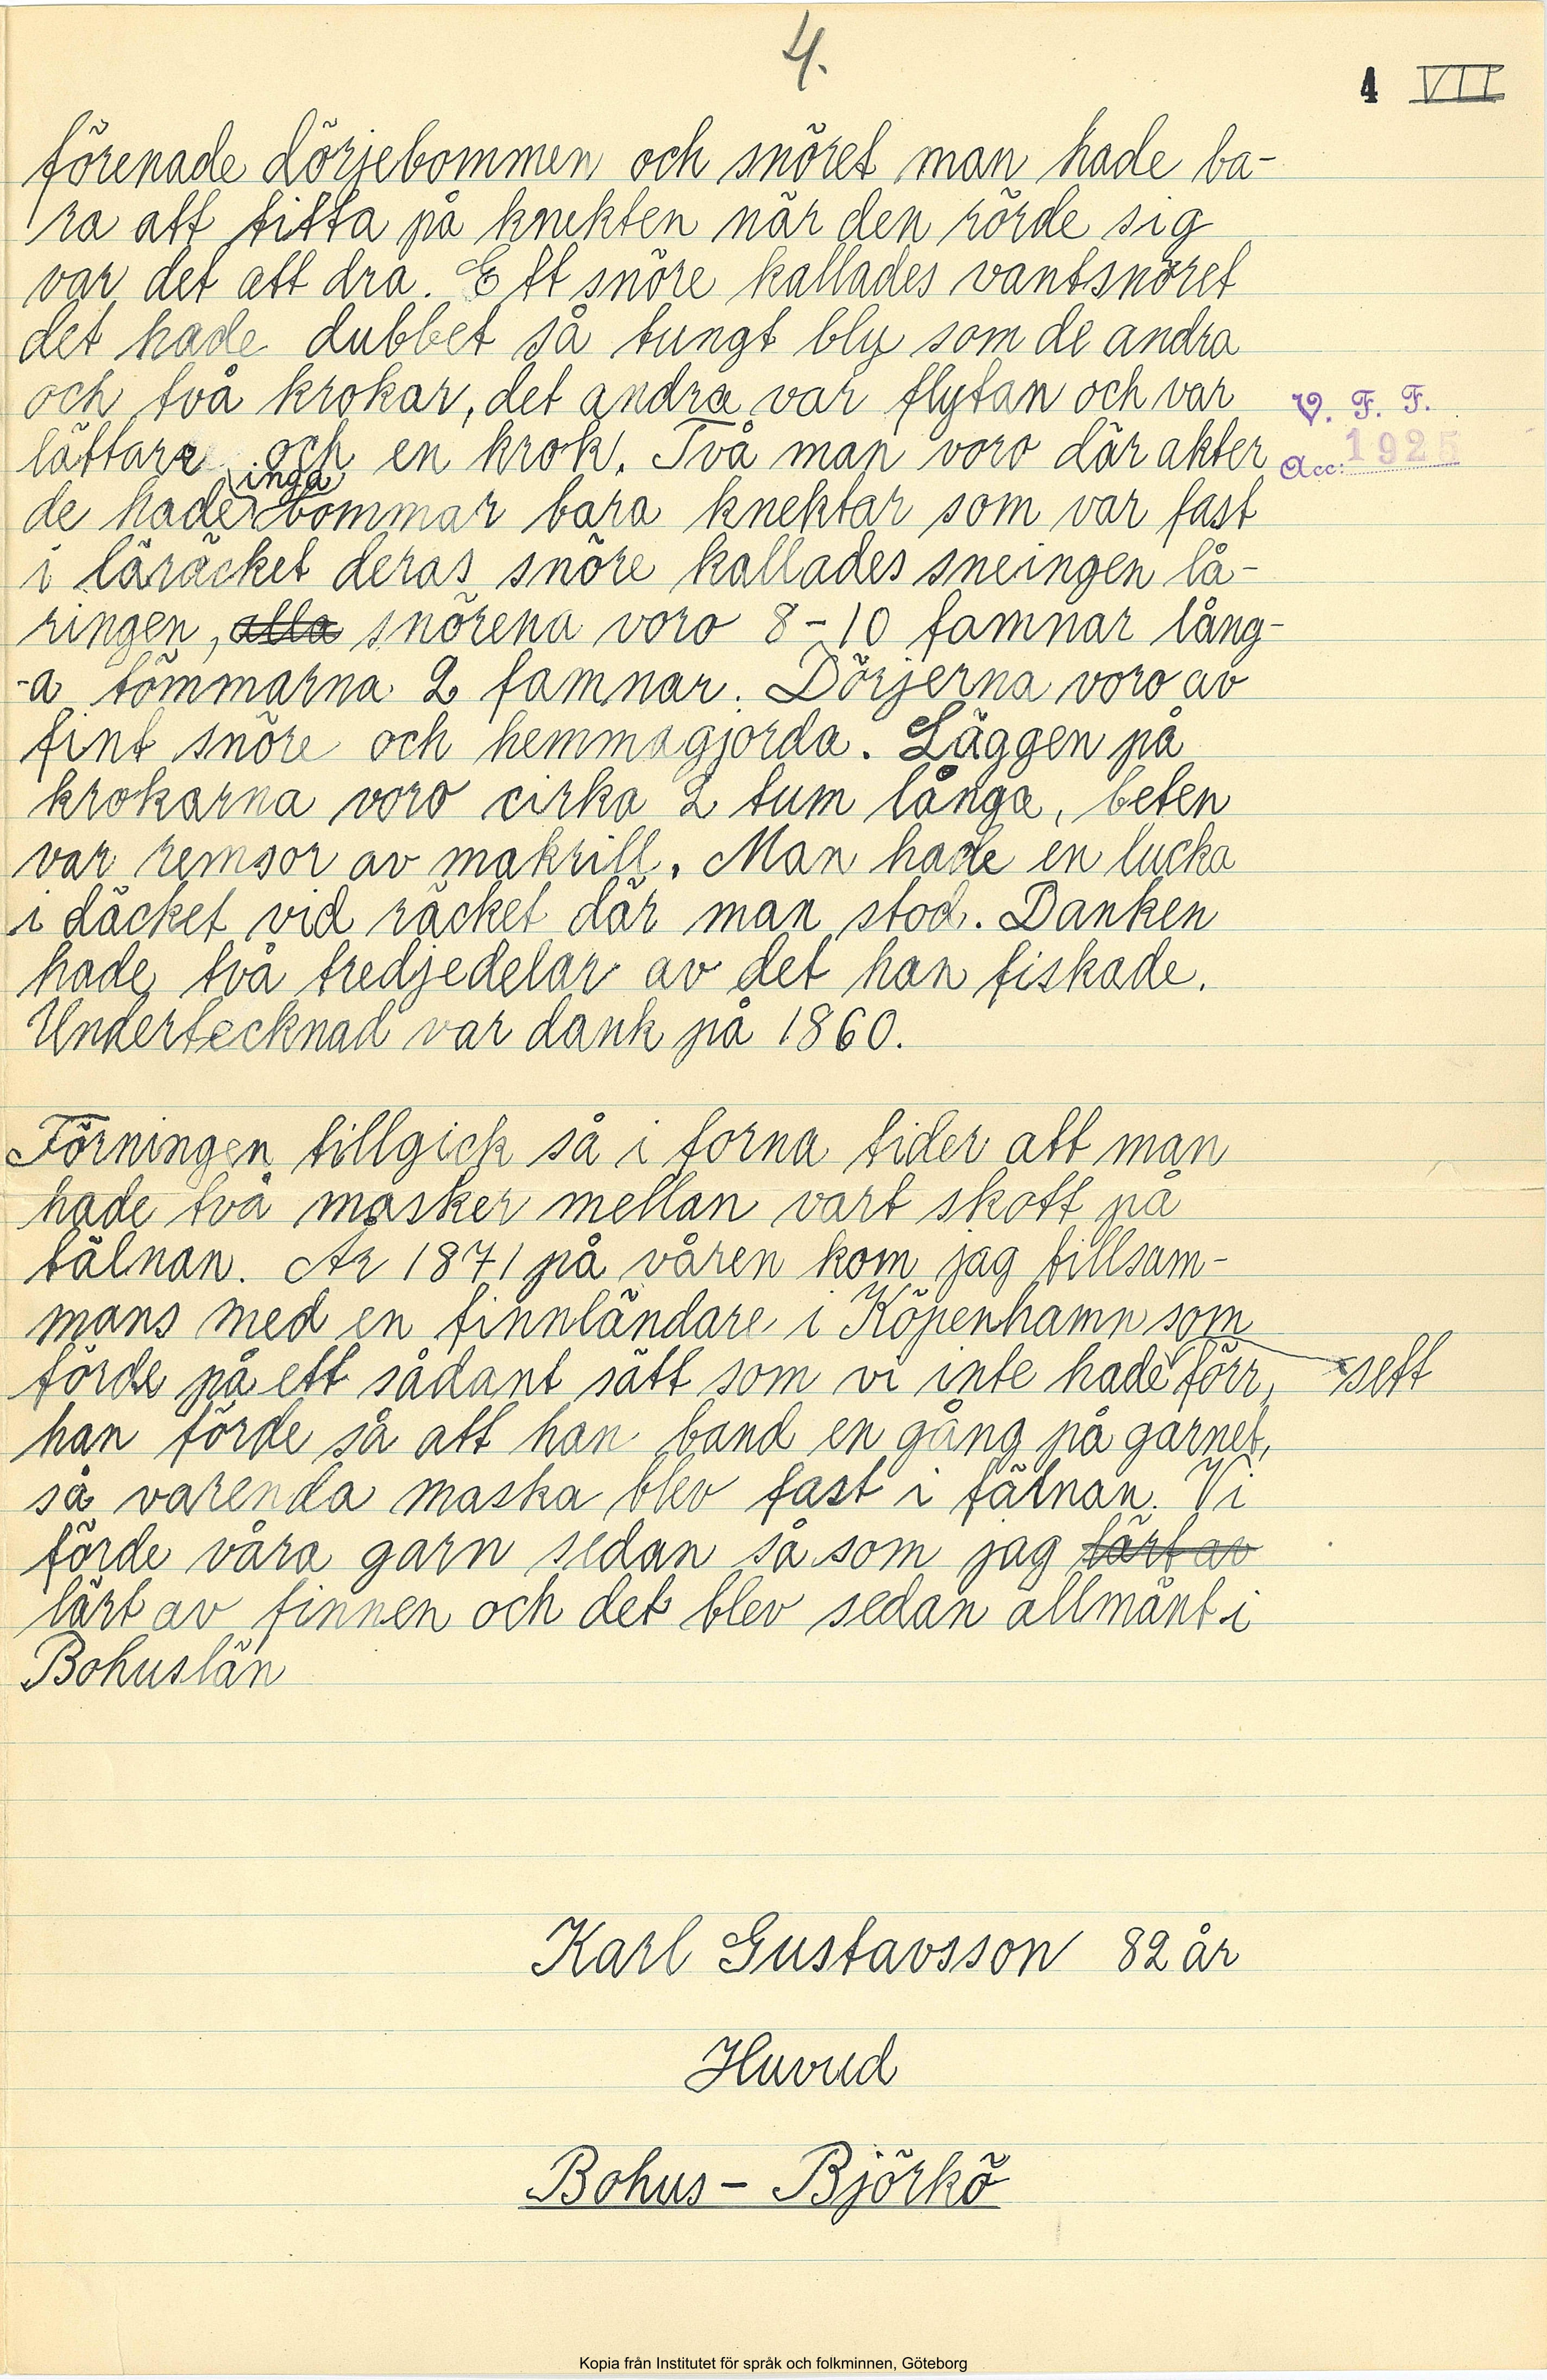 4.
4 VII
förenade dörjebommen och snöret man hade ba-
ra att titta på knekten när den rörde sig
var det att dra. Ett snöre kallades vantsnöret
det hade dubbet så tungt bly som de andra
och två krokar, det andra var flytan och var
V. F. F.
lättare och en krok. Två man voro där akter
Acc: 1925
inga
de hade bommar bara knektar som var fast
i läräcket deras snöre kallades sneingen lå-
ringen, alla snörena voro 8-10 famnar lång-
-a tömmarna 2 famnar. Dörjerna voro av
fint snöre och hemmagjorda. Läggen på
krokarna voro cirka 2 tum långa, beten
var remsor av makrill. Man hade en lucka
i däcket vid räcket där man stod. Danken
hade två tredjedelar av det han fiskade.
Undertecknad var dank på 1860.
Förningen tillgick så i forna tider att man
hade två masker mellan vart skott på
tälnan. År 1871 på våren kom jag tillsam-
mans med en finnländare i Köpenhamn som
förde på ett sådant sätt som vi inte hade förr, sett
han förde så att han band en gång på garnet,
så varenda maska blev fast i fälnan. Vi
förde våra garn sedan så som jag lärt av
lärt av finnen och det blev sedan allmänt i
Bohuslän
Karl Gustavsson 82 år
Huvud
Bohus - Björkö
Kopia från Institutet för språk och folkminnen, Göteborg